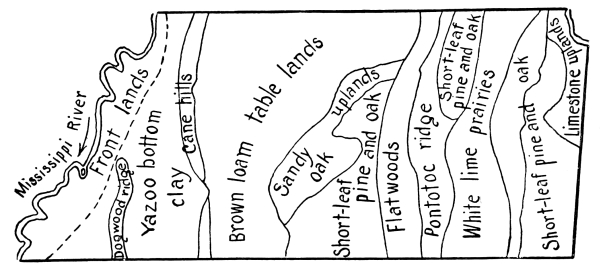 Mississippi River
Front lands
Dogwood ridge
Yazoo bottom
clay
cane hills
Brown loam table lands
Sandy
oak
uplands
Short-leaf
pine and oak
Flatwoods
Pontotoc ridge
Short-leaf
pine and oak
White lime prairies
Short-leaf pine and oak
Limestone uplands